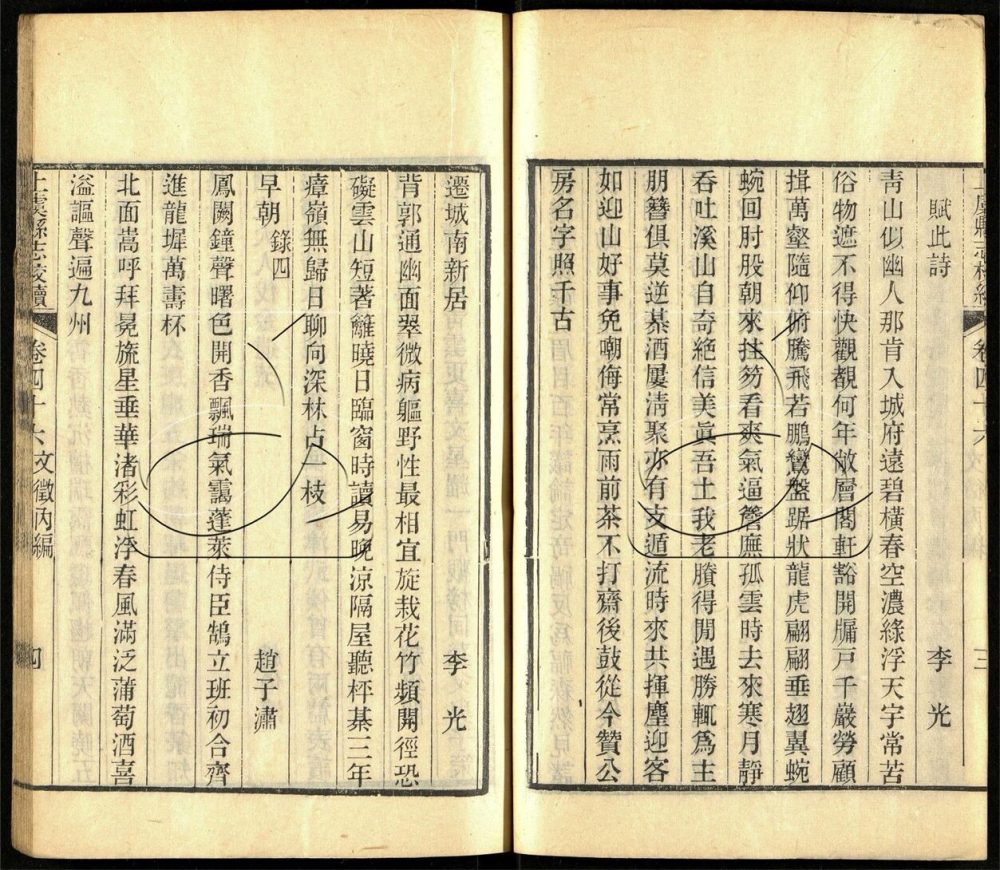 賦此詩 李光
青山似幽人那肯入城府遠碧橫春空濃綠浮天宇常苦
俗物遮不得快觀覩何年敞層閣軒豁開牖戸千巖勞顧
揖萬壑隨仰俯騰飛若鵬鸞盤踞狀龍虎翩翩垂翅翼蜿
蜿回肘股朝來拄笏看爽氣逼簷廡孤雲時去來寒月靜
吞吐溪山自奇絕信美眞吾土我老賸得閒遇勝輒爲主
朋簪俱莫逆棊酒屢淸聚亦有支遁流時來共揮麈迎客
如迎山好事免嘲侮常烹雨前茶不打齋後鼓從今贊公
房名字照千古
遷城南新居 李光
背郭通幽面翠微病軀野性最相宜旋栽花竹頻開徑恐
礙雲山短著籬曉日臨窗時讀易晚涼隔屋聽枰棊三年
瘴嶺無歸日聊向深林占一枝
早朝 錄四 趙子潚
鳳闕鐘聲曙色開香飄瑞氣靄蓬萊侍臣鵠立班初合齊
進龍墀萬壽杯
北面嵩呼拜冕旒星垂華渚彩虹浮春風滿泛蒲萄酒喜
溢謳聲遍九州
上虞縣志校續 卷四十六 文徵丙編 四